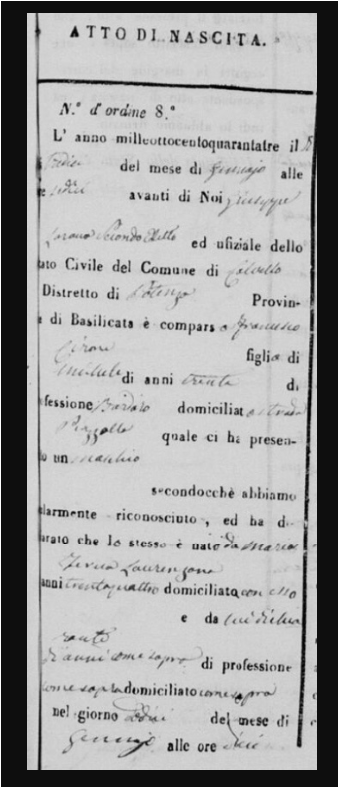 ATTO DI NASCITA.
N.° d'ordine 8.°
L' anno milleottocentoquarantatre il
del mese di Gennajo alle
avanti di Noi Giuseppe
Secondo Eletto ed ufiziale dello
ato Civile del Comune di Calvello
Distretto di Potenza Provin-
a di Basilicata è comparso Francesco
figlio di
Michele di anni trenta di
ofessione domiciliato strada
quale ci ha presen-
to un maschio
secondocchè abbiamo
olarmente riconosciuto, ed ha di-
iarato che lo stesso è nato da Maria
Teresa Laurenzana
anni trentaquattro domiciliata con esso
e da lui dichia
rante
di anni come sopra di professione
come sopra domiciliato come sopra
nel giorno del mese di
Gennajo alle ore dieci